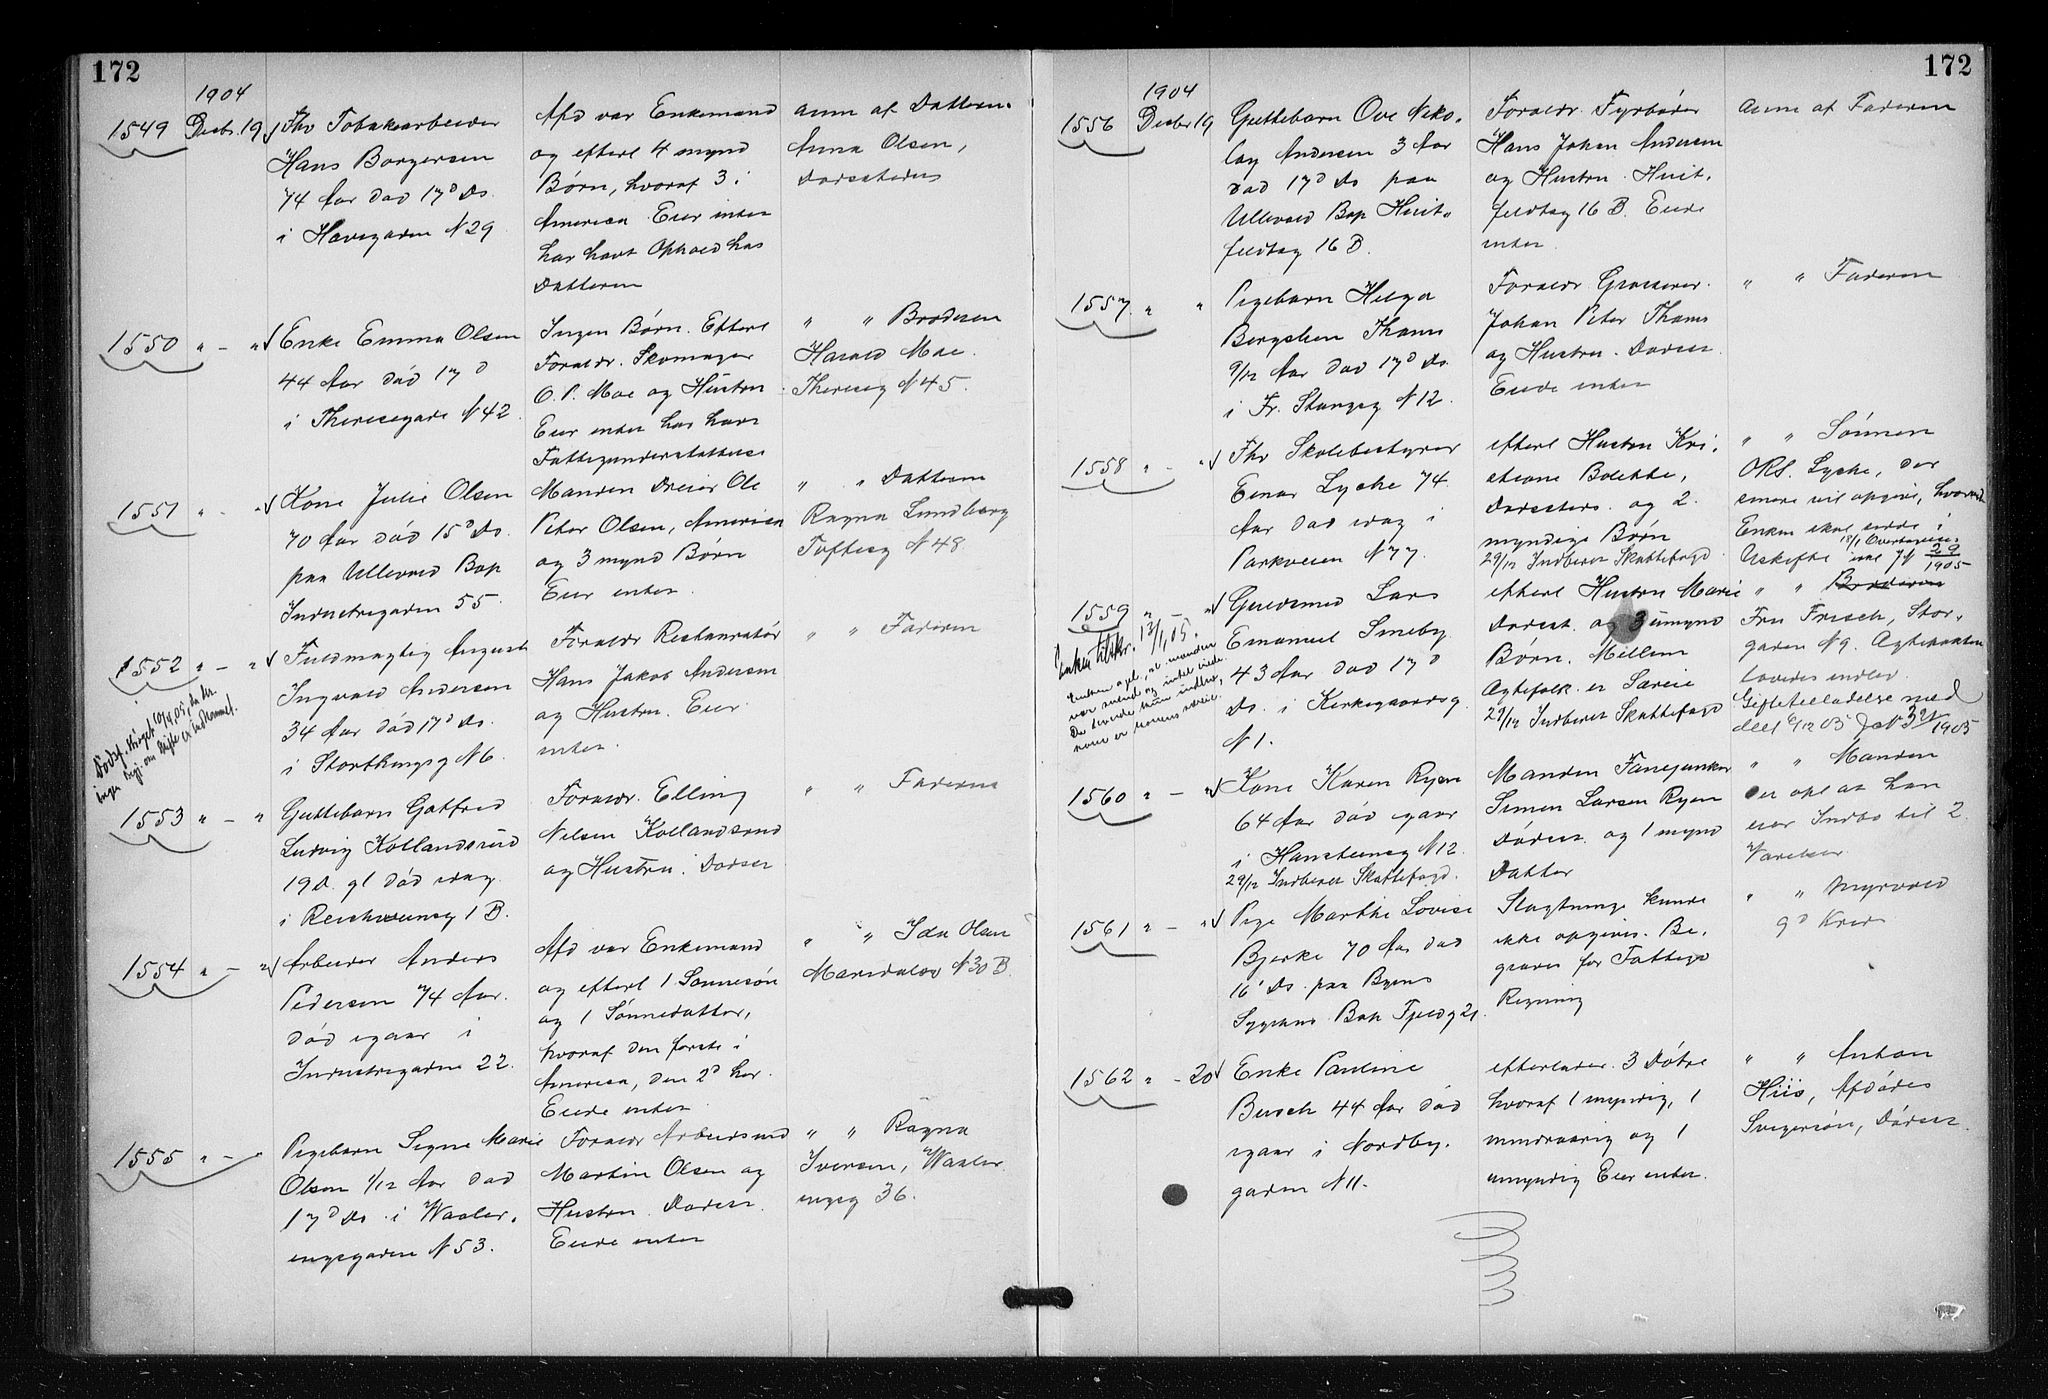 172
1904
1549 Decbr. 19 Fhv Tobakarbeider
Hans Borgersen
74 Aar død 17d Ds.
i Havegaden N 29
Afd var Enkemand
og efterl 4 mynd
Børn, hvoraf 3 i
America Eier intet
har havt Ophold hos
Datteren
Anm af Datteren
Anna Olsen,
Dødsstedet
1550 " - " Enke Emma Olsen
44 Aar død 17d
i Theresegade N 42
Ingen Børn. Efterl
Foreldr. Skomager
O. P. Moe og Hustru
Eier intet har havt
Fattigunderstøttelse
" " Broderen
Harald Moe
Thereseg N 45.
1551 " - " Kone Julie Olsen
70 Aar død 15d Ds.
paa Ullevold Bop
Industrigaden 55.
Manden Dreier Ole
Peter Olsen, America
og 3 mynd Børn
Eier intet.
" " Datteren
Ragna Lundberg
Tofteg N 48
1552 " - " Fuldmægtig August
Ingvald Andersen
34 Aar død 17d Ds.
i Storthingsg N 6
Foreldr Restauratør
Hans Jakob Andersen
og Hustru. Eier
intet.
" " Faderen
1553 " - " Guttebarn Gotfred
Ludvig Kollandsrud
19 D. gl død idag
i Reichweinsg 1 B.
Foreldr. Elling
Nilsen Kollandsrud
og Hustru. Dødsst
" " Faderen
1554 " - " Arbeider Anders
Pedersen 74 Aar.
død igaar i
Industrigaden 22.
Afd var Enkemand
og efterl 1 Sønnesøn
og 1 Sønnedatter,
hvoraf den første i
America, den 2d her.
Eiede intet
" " Ida Olsen
Maridalsv N 30 B.
1555 " - " Pigebarn Signe Marie
Olsen 1/12 Aar død
17d Ds. i Vaaler.
engsgaden N 53.
Foreldr Arbeidsmd
Martin Olsen og
Hustru. Dødsst.
Eiede intet
" " Ragna
Iversen, Vaaler
engsg 36.
172
1904
1556 Decbr 19 Guttebarn Ove Niko.
lay Andersen 3 Aar
død 17d Ds paa
Ullevold Bop Hvit.
feldtsg 16 B.
Foreldr. Fyrbøder
Hans Johan Andersen
og Hustru Hvit.
feldtsg 16 B. Eiede
intet.
Anm af Faderen
1557 " " Pigebarn Helga
Bergslien Thams
9/12 Aar død 17d Ds.
i Fr. Stangsg N 12.
Foreldr Grosserer
Johan Peter Thams
og Hustru. Dødsst.
Eiede intet
" " Faderen
1558 " - " Fhv Skolebestyrer
Einar Lyche 74
Aar død idag i
Parkveien N 77
efterl Hustru Kri
stiane Bolette,
Dødsstedet. og 2
myndige Børn
29/12 Indberet Skattefogd
" " Sønnen
ORS. Lyche, der
senere vil opgive, hvorvidt
Enken skal sidde i
Uskiftet
1559 " - " Guldsmed Lars
Emanuel Smeby
43 Aar død 17d
Ds. i Kirkegaardsg
N 1.
efterl Hustru Marie
Dødsst. og 3 umynd
Børn. Mellem
Ægtefolk er Særeie
29/12 Indberet Skattefogd
" " Broderen
Fru Frisch, Stor.
gaden N 9. Ægtepakten
loveres indlev
1560 " - " Kone Karen Ryen
64 Aar død igaar
i Hansteensg N 12.
29/12 Indberet Skattefogd.
Manden Fanejunker
Simen Larsen Ryen
Dødsst. og 1 mynd
Datter
" " Manden
der opl at han
eier Indbo til 2
Værelser
1561 " - " Pige Marthe Lovise
Bjerke 70 Aar død
16' Ds. paa Byens
Sygehus Bop Fjeldg 21.
Slægtninge kunde
ikke opgives. Be.
graves for Fattigv
Regning
" " Myrvold
gd Kred
1562 " - 20 Enke Pauline
Busch 44 Aar død
igaar i Nordby.
gaden N 11.
efterlader 3 Døtre
hvoraf 1 myndig, 1
mindreaarig og 1
umyndig Eier intet.
" " Anton
Hiis, Afdødes
Svigersøn, Dødsst.